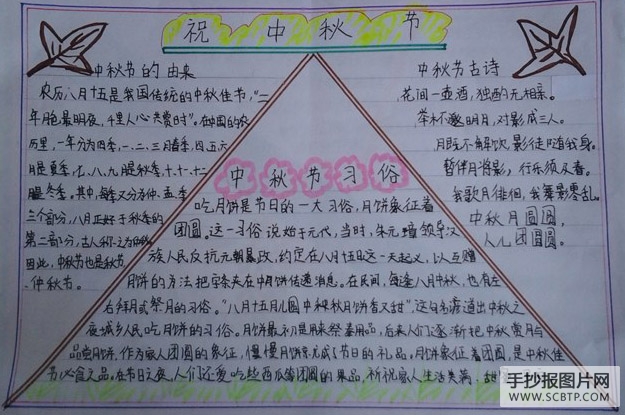 祝中秋节
中秋节的由来
农历八月十五是我国传统的中秋佳节,"二
年月色最明夜,千里人心共赏时"。在中国的农
历里,一年分为四季,一、二、三月春季,四、五、六
月是夏季,七、八、九月是秋季,十、十一、十二
月是冬季。其中,每季又分为仲、孟、季
三个部分,八月正好于秋季的
第二部分,古人称之为仲秋
因此,中秋节也是秋节
仲秋节。
中秋节古诗
花间一壶酒,独酌无相亲。
举杯邀明月,对影成三人。
月既不解饮,影徒随我身。
暂伴月将影,行乐须及春。
我歌月徘徊,我舞影零乱。
中秋月圆圆,
人儿团圆圆。
中秋节习俗
吃月饼是节日的一大习俗,月饼象征着
团圆。这一习俗说始于元代,当时,朱元璋领导汉
族人民反抗元朝暴政,约定在八月十五日这一天起义,以互赠
月饼的方法把字条夹在中月饼传递消息。在民间,每逢八月中秋,也有左
右拜月或祭月的习俗。"八月十五月儿圆中秋月饼香又甜",这句名谚道出中秋之
夜城乡人民吃月饼的习俗。月饼最初是用来祭奉用品,后来人们逐渐把中秋赏月与
品尝月饼,作为家人团圆的象征,慢慢月饼就成了节日的礼品。月饼象征着团圆,是中秋佳
节必食之品。在节日之夜,人们还爱吃些西瓜等团圆的果品,祈祝家人生活美满、甜
手抄报图片网
WWW.SCBTP.COM